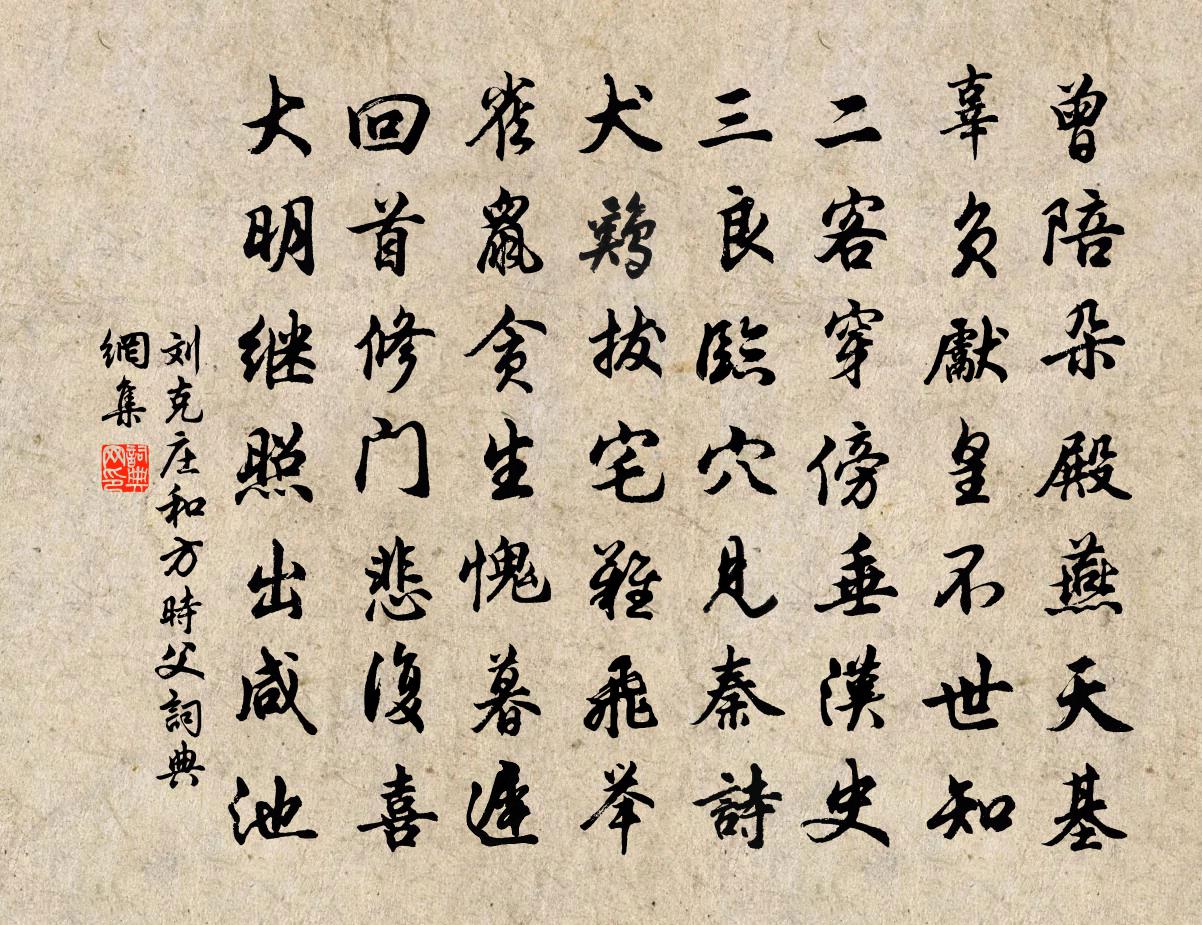 曾陪朵殿燕天基
辜负獻皇不世知
二客穿傍垂漢史
三良臨穴見秦詩
犬鷄拔宅難飛举
雀鼠貪生愧暮遲
回首修门悲復喜
大明继照出咸池
刘克庄和方時父詞典
網集
詞典网印